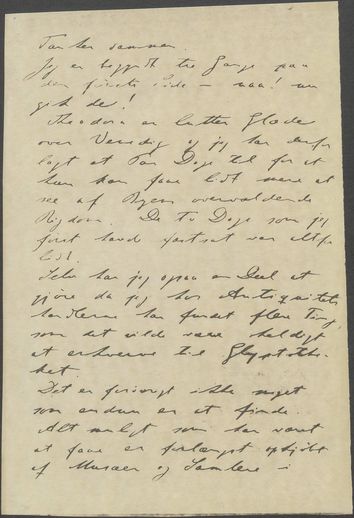 Tanker sammen.
Jeg er begyndt tre Gange paa
den første Side — naa! nu
gik det!
Theodora er lutter Glæde
over Venedig og jeg har derfor
lagt et Par Dage til for at
hun kan faae lidt mere at
see af Byens overvældende
Rigdom. De to Dage som jeg
først havde fastsat var altfor
lidt.
Selv har jeg ogsaa en Deel at
gjöre da jeg hos Antiquitets
handlerne har fundet flere Ting,
som det vilde være heldigt
at erhverve til Glyptothe-
ket.
Det er forövrigt ikke meget
som endnu er at finde.
Alt muligt som har været
at faae er forlængst opkjöbt
af Musæer og Samlere i